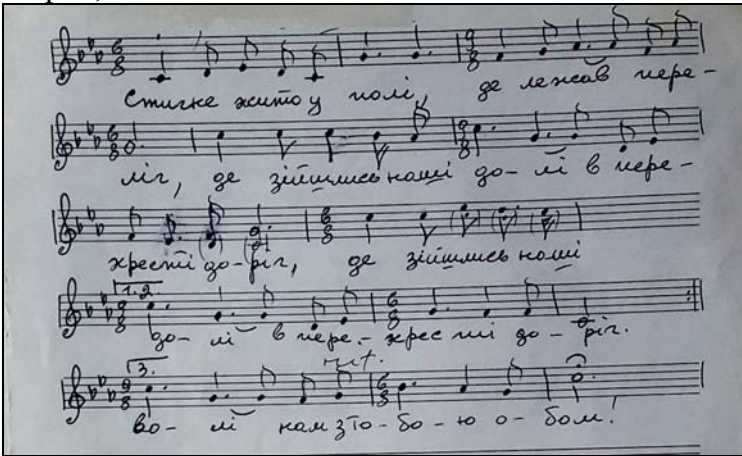 Стигне жито у полі, де лежав пере-
ліг, де зійшлись наші до-лі в пере-
хресті до-ріг, де зійшлись наші
1.2.
до-лі в пере-хресті до-ріг.
3. rit.
во-лі нам з то-бо-ю о-бом!